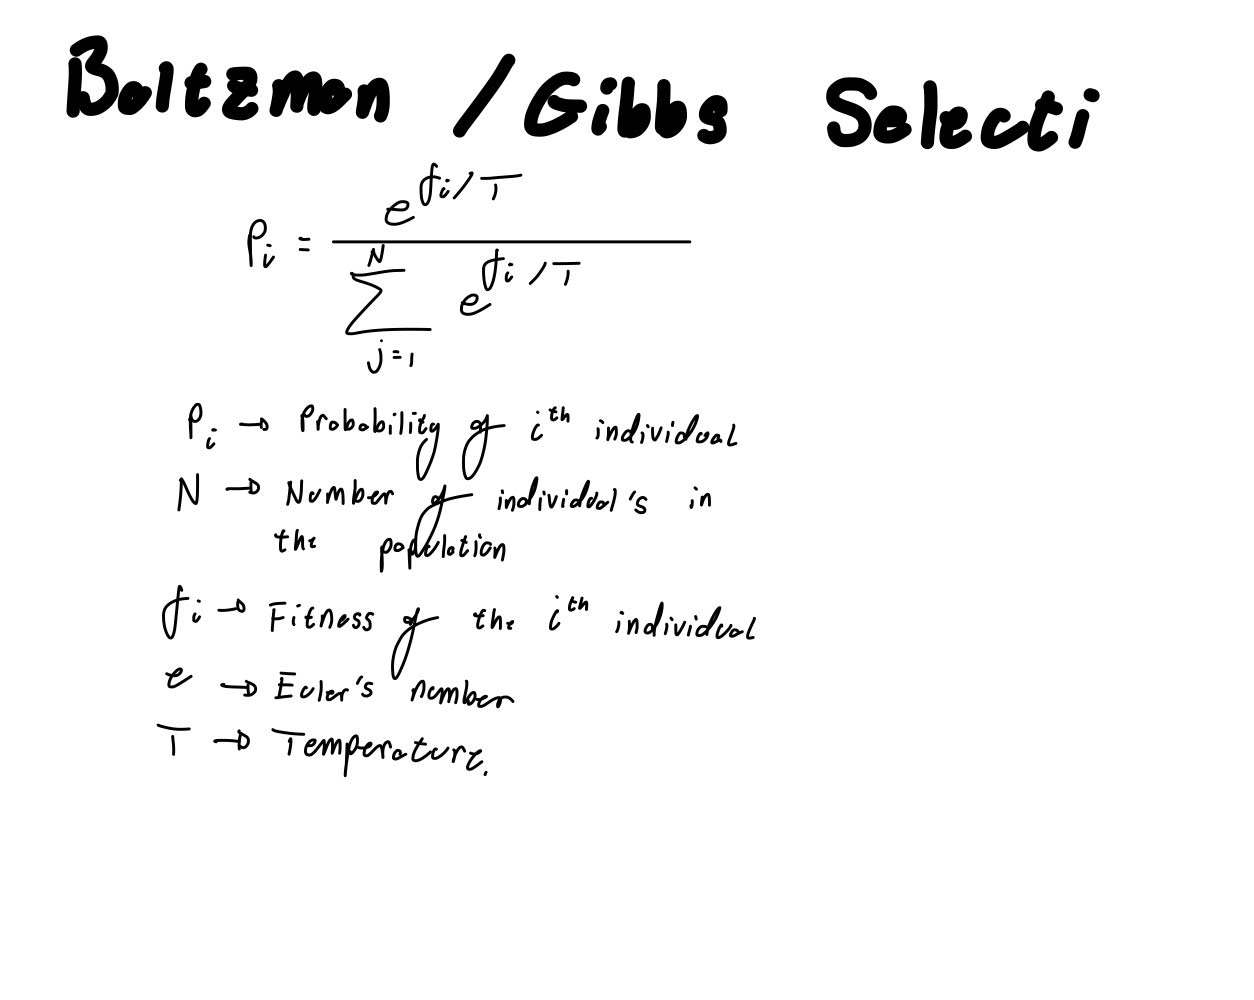 Boltzman / Gibbs Selecti
P_i = e^{f_i/T} / \sum_{j=1}^{N} e^{f_i/T}
P_i → Probability of i^th individual
N → Number of individual's in
the population
f_i → Fitness of the i^th individual
e → Euler's number
T → Temperature.